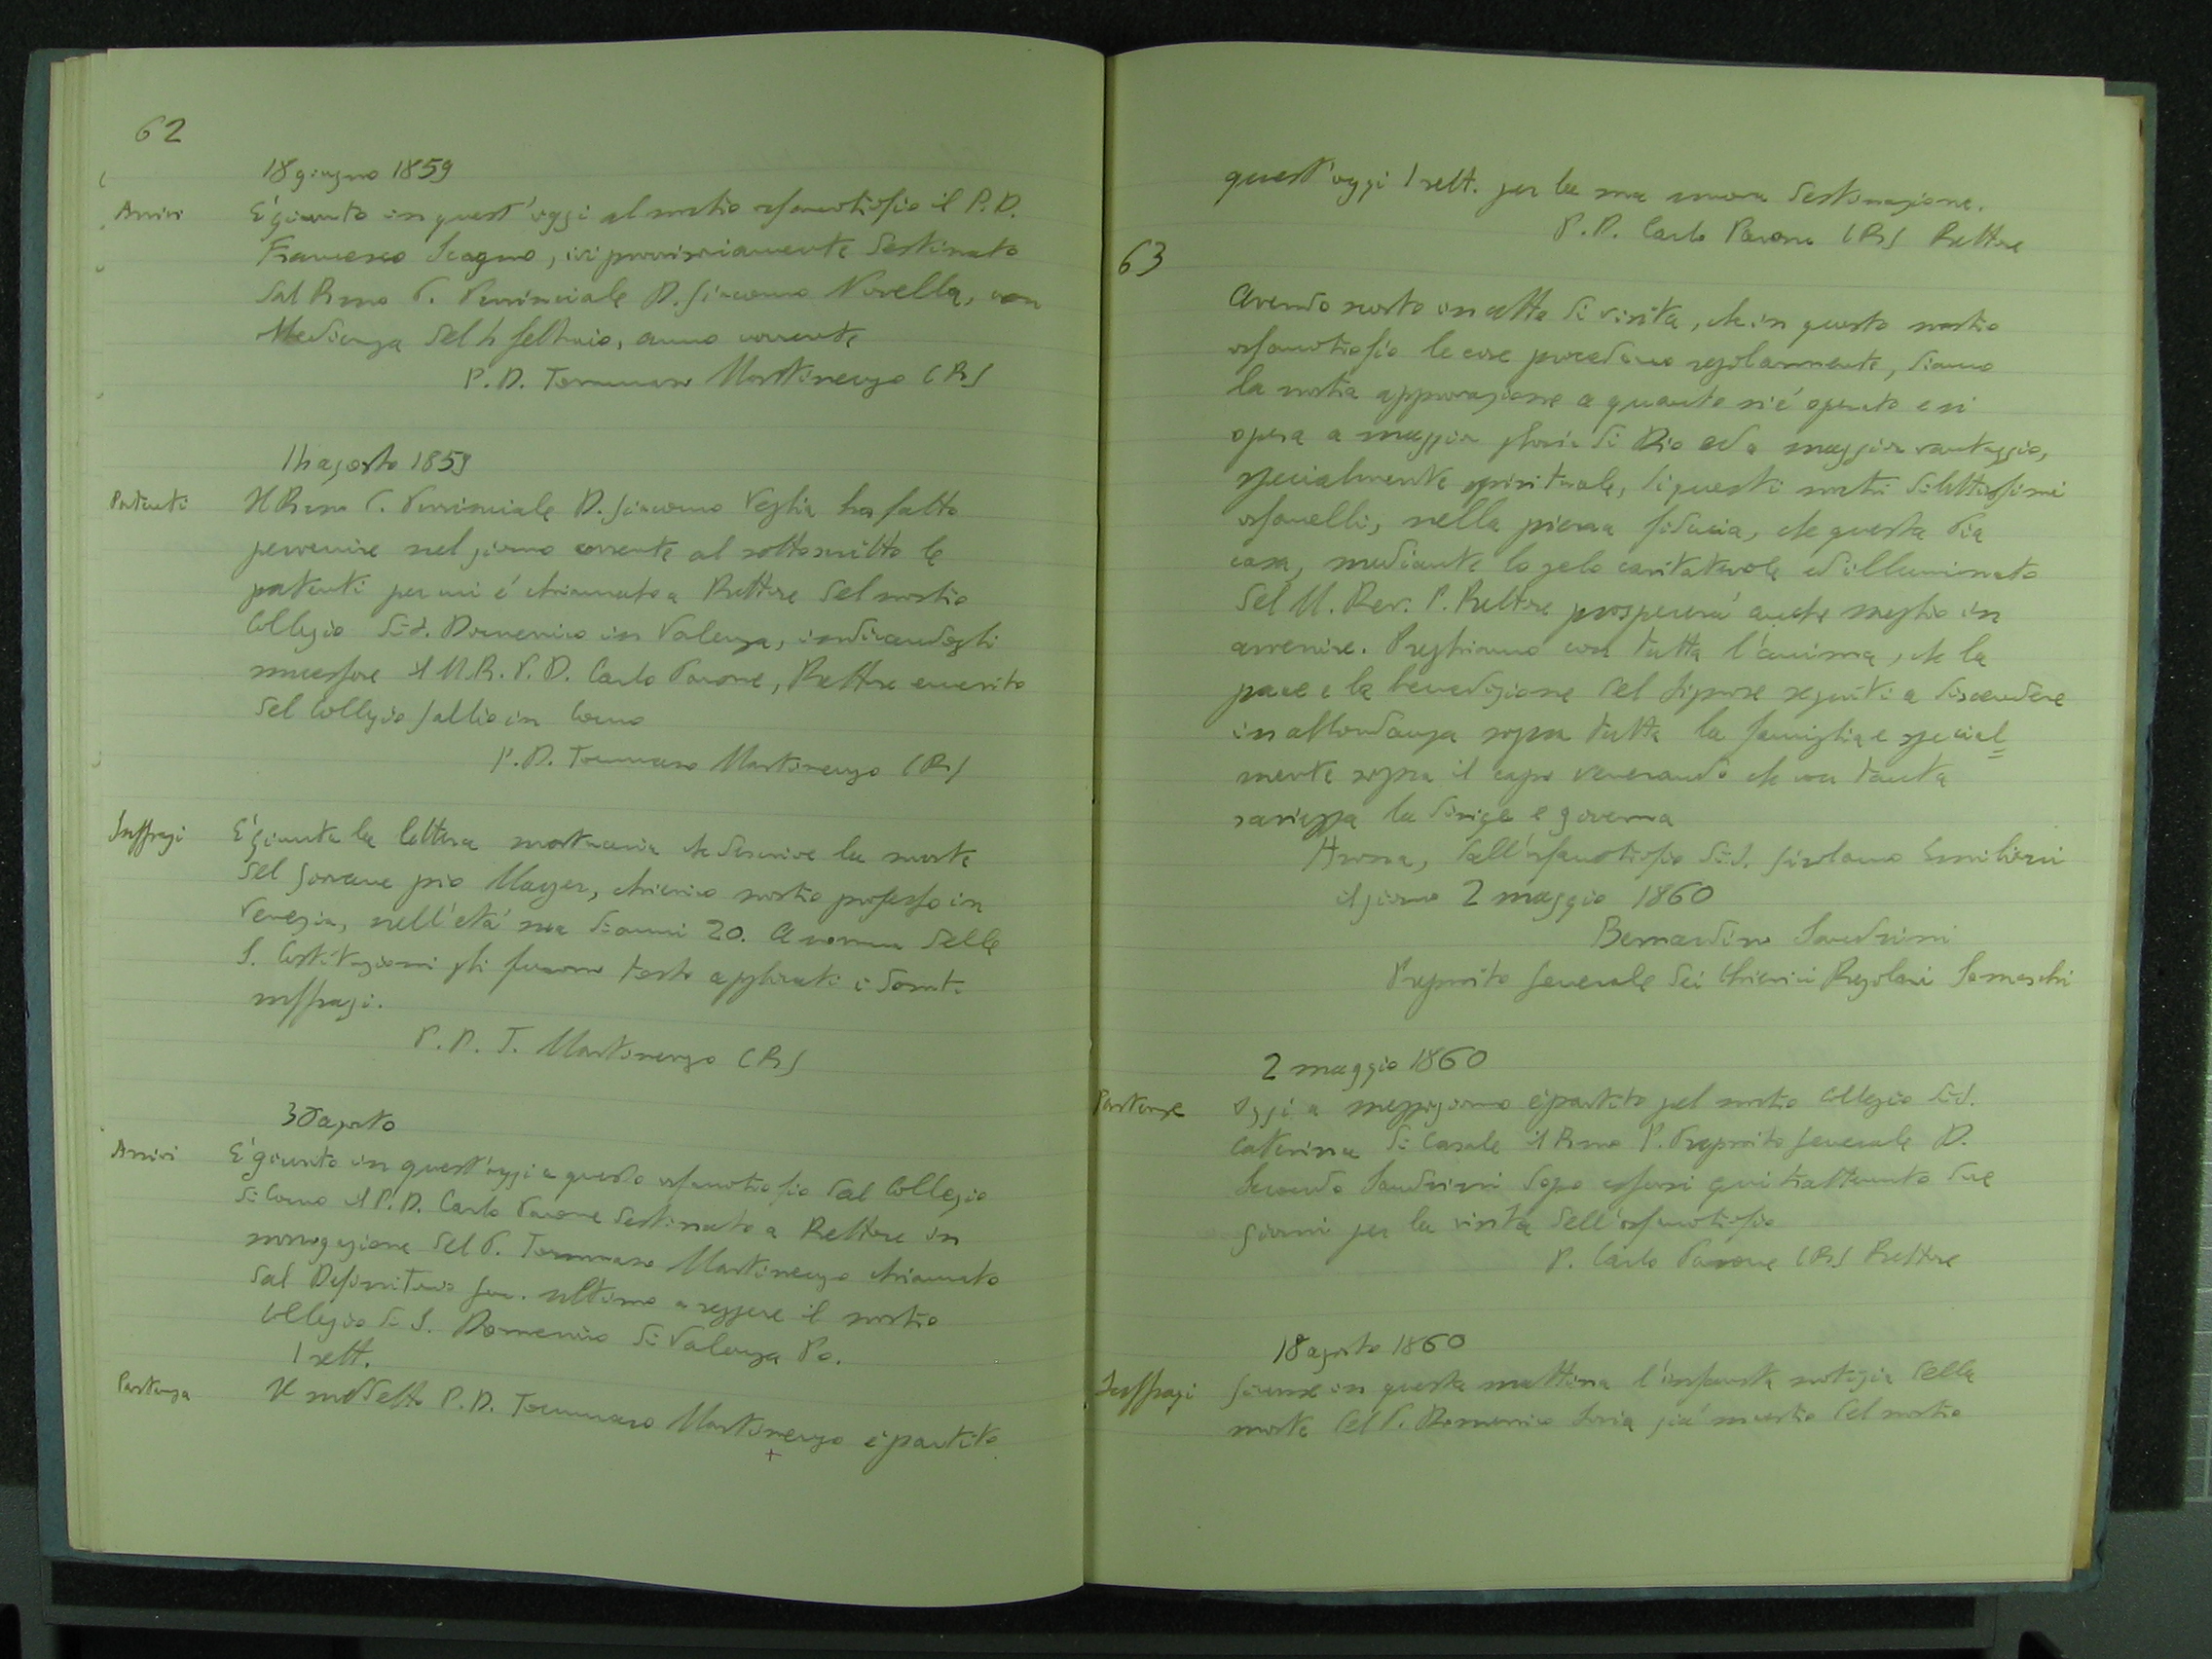 62
18 giugno 1859
Arrivi
E' giunto in quest'oggi al nostro orfanotrofio il P.D.
Francesco Scagno, ivi provvisoriamente destinato
dal Rmo P. Provinciale D. Giacomo Novella, con
Obedienza del 4 febbraio, anno corrente
P. D. Tommaso Martinengo CRS
14 agosto 1859
Patenti
Il Rmo P. Provinciale D. Giacomo Veglia ha fatto
pervenire nel giorno corrente al sottoscritto le
patenti per cui é chiamato a Rettore del nostro
Collegio di S. Domenico in Valenza, indicandogli
successore il M.R.P.D. Carlo Pavone, Rettore emerito
del Collegio Gallio in Como
P.D. Tommaso Martinengo CRS
Suffragi
E' giunta la lettera mortuaria che descrive la morte
del giovane pio Mayer, chierico nostro professo in
Venezia, nell'etá sua di anni 20. A norma delle
S. Costituzioni gli furono tosto applicati i dovuti
suffragi.
P. D. T. Martinengo CRS
30 agosto
Arrivi
E' giunto in quest'oggi a questo orfanotrofio dal Collegio
di Como il P.D. Carlo Pavone destinato a Rettore in
surrogazione del P. Tommaso Martinengo chiamato
dal Definitorio Gen. ultimo a reggere il nostro
Collegio di S. Domenico di Valenza Po.
1 sett.
Partenza
Il suddetto P.D. Tommaso Martinengo é partito
quest'oggi 1 sett. per la sua nuova destinazione.
P. D. Carlo Pavone CRS Rettore
63
Avendo scorto in atto di visita, che in questo nostro
orfanotrofio le cose procedono regolarmente, diamo
la nostra approvazione a quanto si é operato e si
opera a maggior gloria di Dio ed a maggior vantaggio,
specialmente spirituale, di questi nostri dilettissimi
orfanelli, nella piena fiducia, che questa Pia
casa, mediante lo zelo caritatevole ed illuminato
del M. Rev. P. Rettore prospererá anche meglio in
avvenire. Preghiamo con tutta l'anima, che la
pace e la benedizione del Signore seguiti a discendere
in abbondanza sopra tutta la famiglia e special=
mente sopra il capo venerando che con tanta
saviezza la dirige e governa
Arona, dall'orfanotrofio di S. Girolamo Emiliani
il giorno 2 maggio 1860
Bernardino Sandrini
Preposito Generale dei Chierici Regolari Somaschi
2 maggio 1860
Partenze
Oggi a mezzogiorno é partito pel nostro Collegio di S.
Caterina di Casale il Rmo P. Preposito Generale D.
Sandrini dopo essersi qui trattenuto due
giorni per la visita dell'orfanotrofio
P. Carlo Pavone CRS Rettore
18 agosto 1860
Suffragi
Giunse in questa mattina l'infausta notizia della
morte del P. Domenico Soria giá maestro del nostro